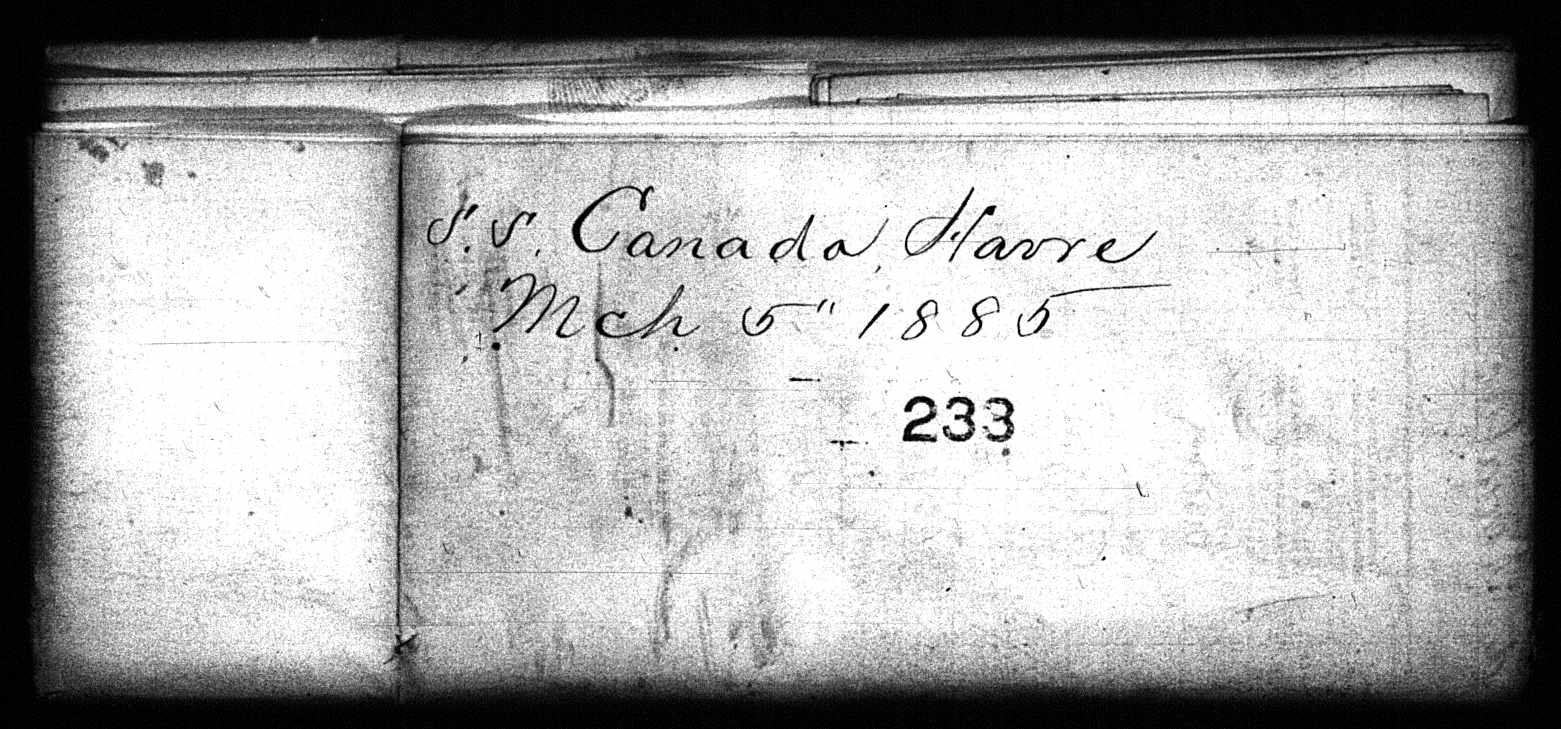 S.S. Canada, Havre
Mch 5" 1885
233